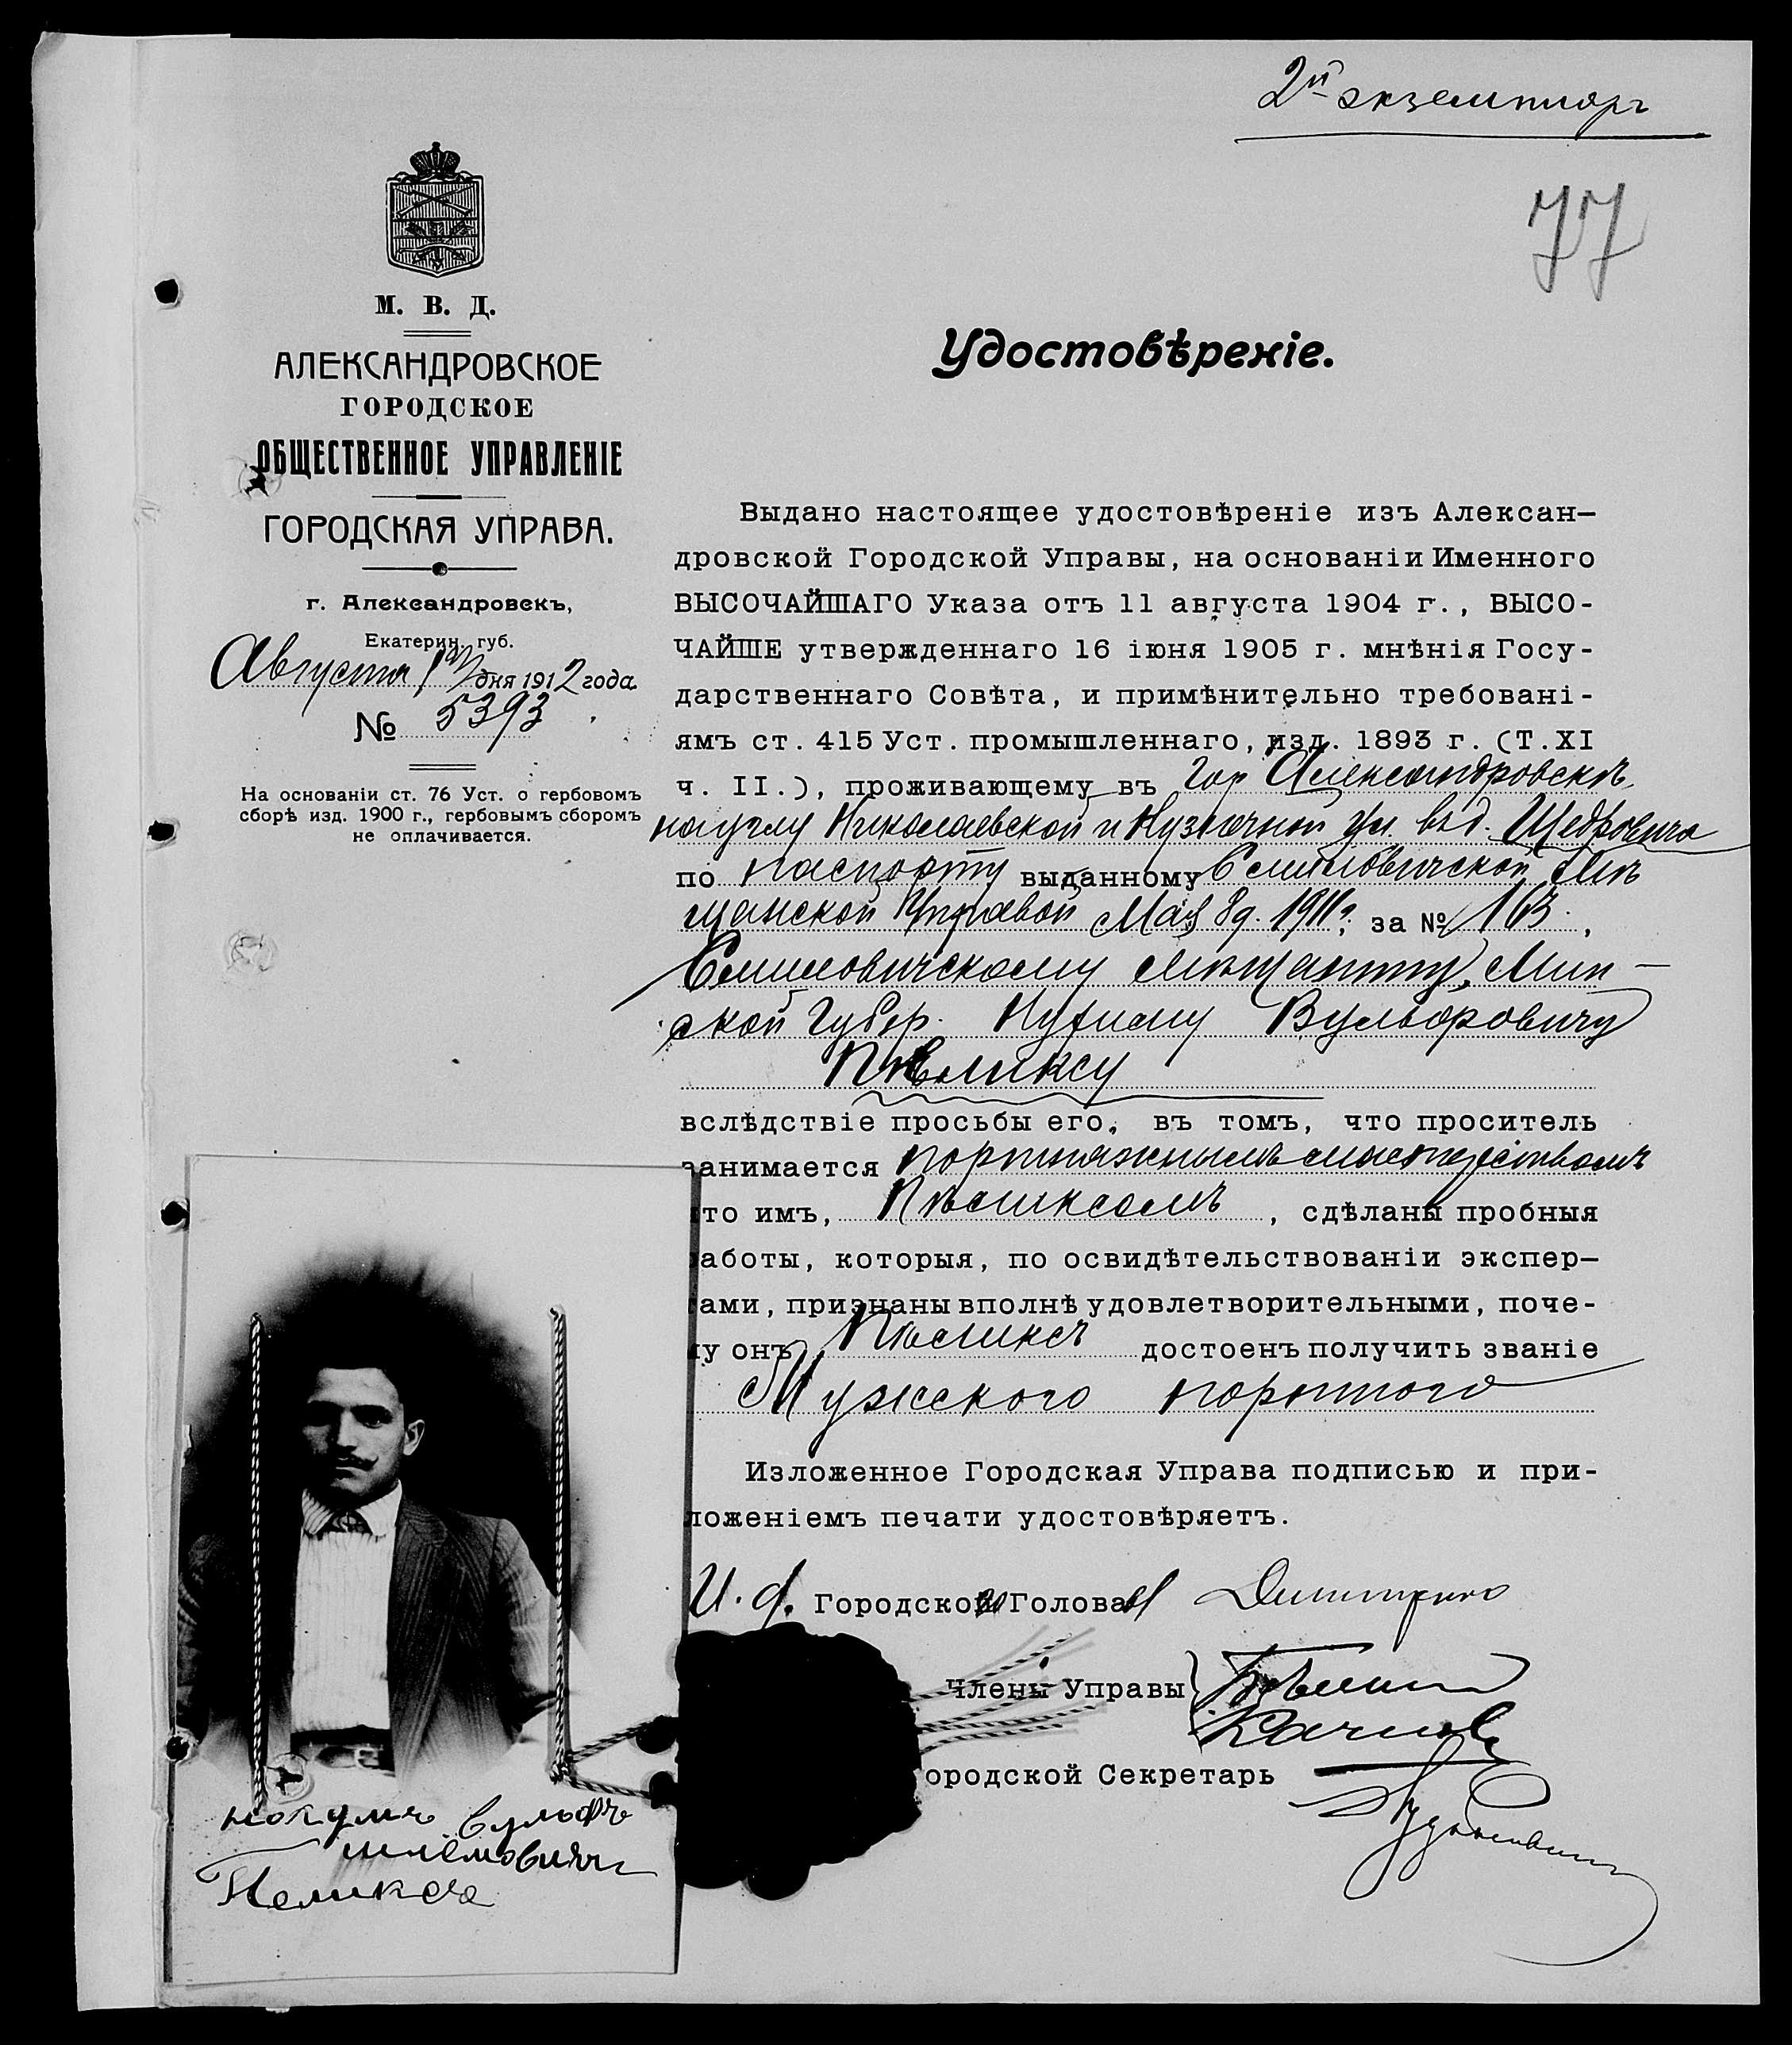 2й экземпляръ
77
М. В. Д.
АЛЕКСАНДРОВСКОЕ
ГОРОДСКОЕ
ОБЩЕСТВЕННОЕ УПРАВЛЕНІЕ
ГОРОДСКАЯ УПРАВА.
г. Александровскъ,
Екатерин. губ.
Августа 1 дня 1912 года
№ 5393
На основаніи ст. 76 Уст. о гербовомъ
сборѣ изд. 1900 г., гербовымъ сборомъ
не оплачивается.
Удостовѣреніе.
Выдано настоящее удостовѣреніе изъ Алексан-
дровской Городской Управы, на основаніи Именного
ВЫСОЧАЙШАГО Указа отъ 11 августа 1904 г., ВЫСО-
ЧАЙШЕ утвержденнаго 16 іюня 1905 г. мнѣнія Госу-
дарственнаго Совѣта, и примѣнительно требовані-
ямъ ст. 415 Уст. промышленнаго, изд. 1893 г. (Т. XI
ч. II.), проживающему въ гор. Александровскѣ,
на углу Николаевской и Кузнечной ул. в д. Щедровича
по паспорту выданному Селиловичской Мѣ
щанской Управой Мая 8 д. 1911 г. за № 163.,
мѣщанину, Мин-
ской Губер. Нухиму Вульфовичу
Пѣликсу
вслѣдствіе просьбы его, въ томъ, что проситель
занимается портняжнымъ мастерствомъ
что имъ, Пѣликсомъ, сдѣланы пробныя
работы, которыя, по освидѣтельствованіи экспер-
тами, признаны вполнѣ удовлетворительными, поче-
му онъ Пѣликсъ достоенъ получить званіе
Мужского портного
Изложенное Городская Управа подписью и при-
ложеніемъ печати удостовѣряетъ.
И. д. Городского Головы
Члены Управы
ородской Секретарь
нохумъ вульфъ
шлёмовичъ
Пеликсъ